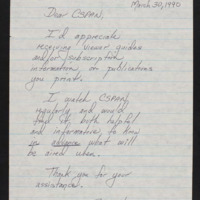 March 30, 1990
Dear CSPAN,
I'd appreciate
receiving viewer guides
and/or subscription
information on publications
you print.
I watch CSPAN
regularly and would
find it both helpful
and informative to know
in what will
be aired when.
Thank you for your
assistance.